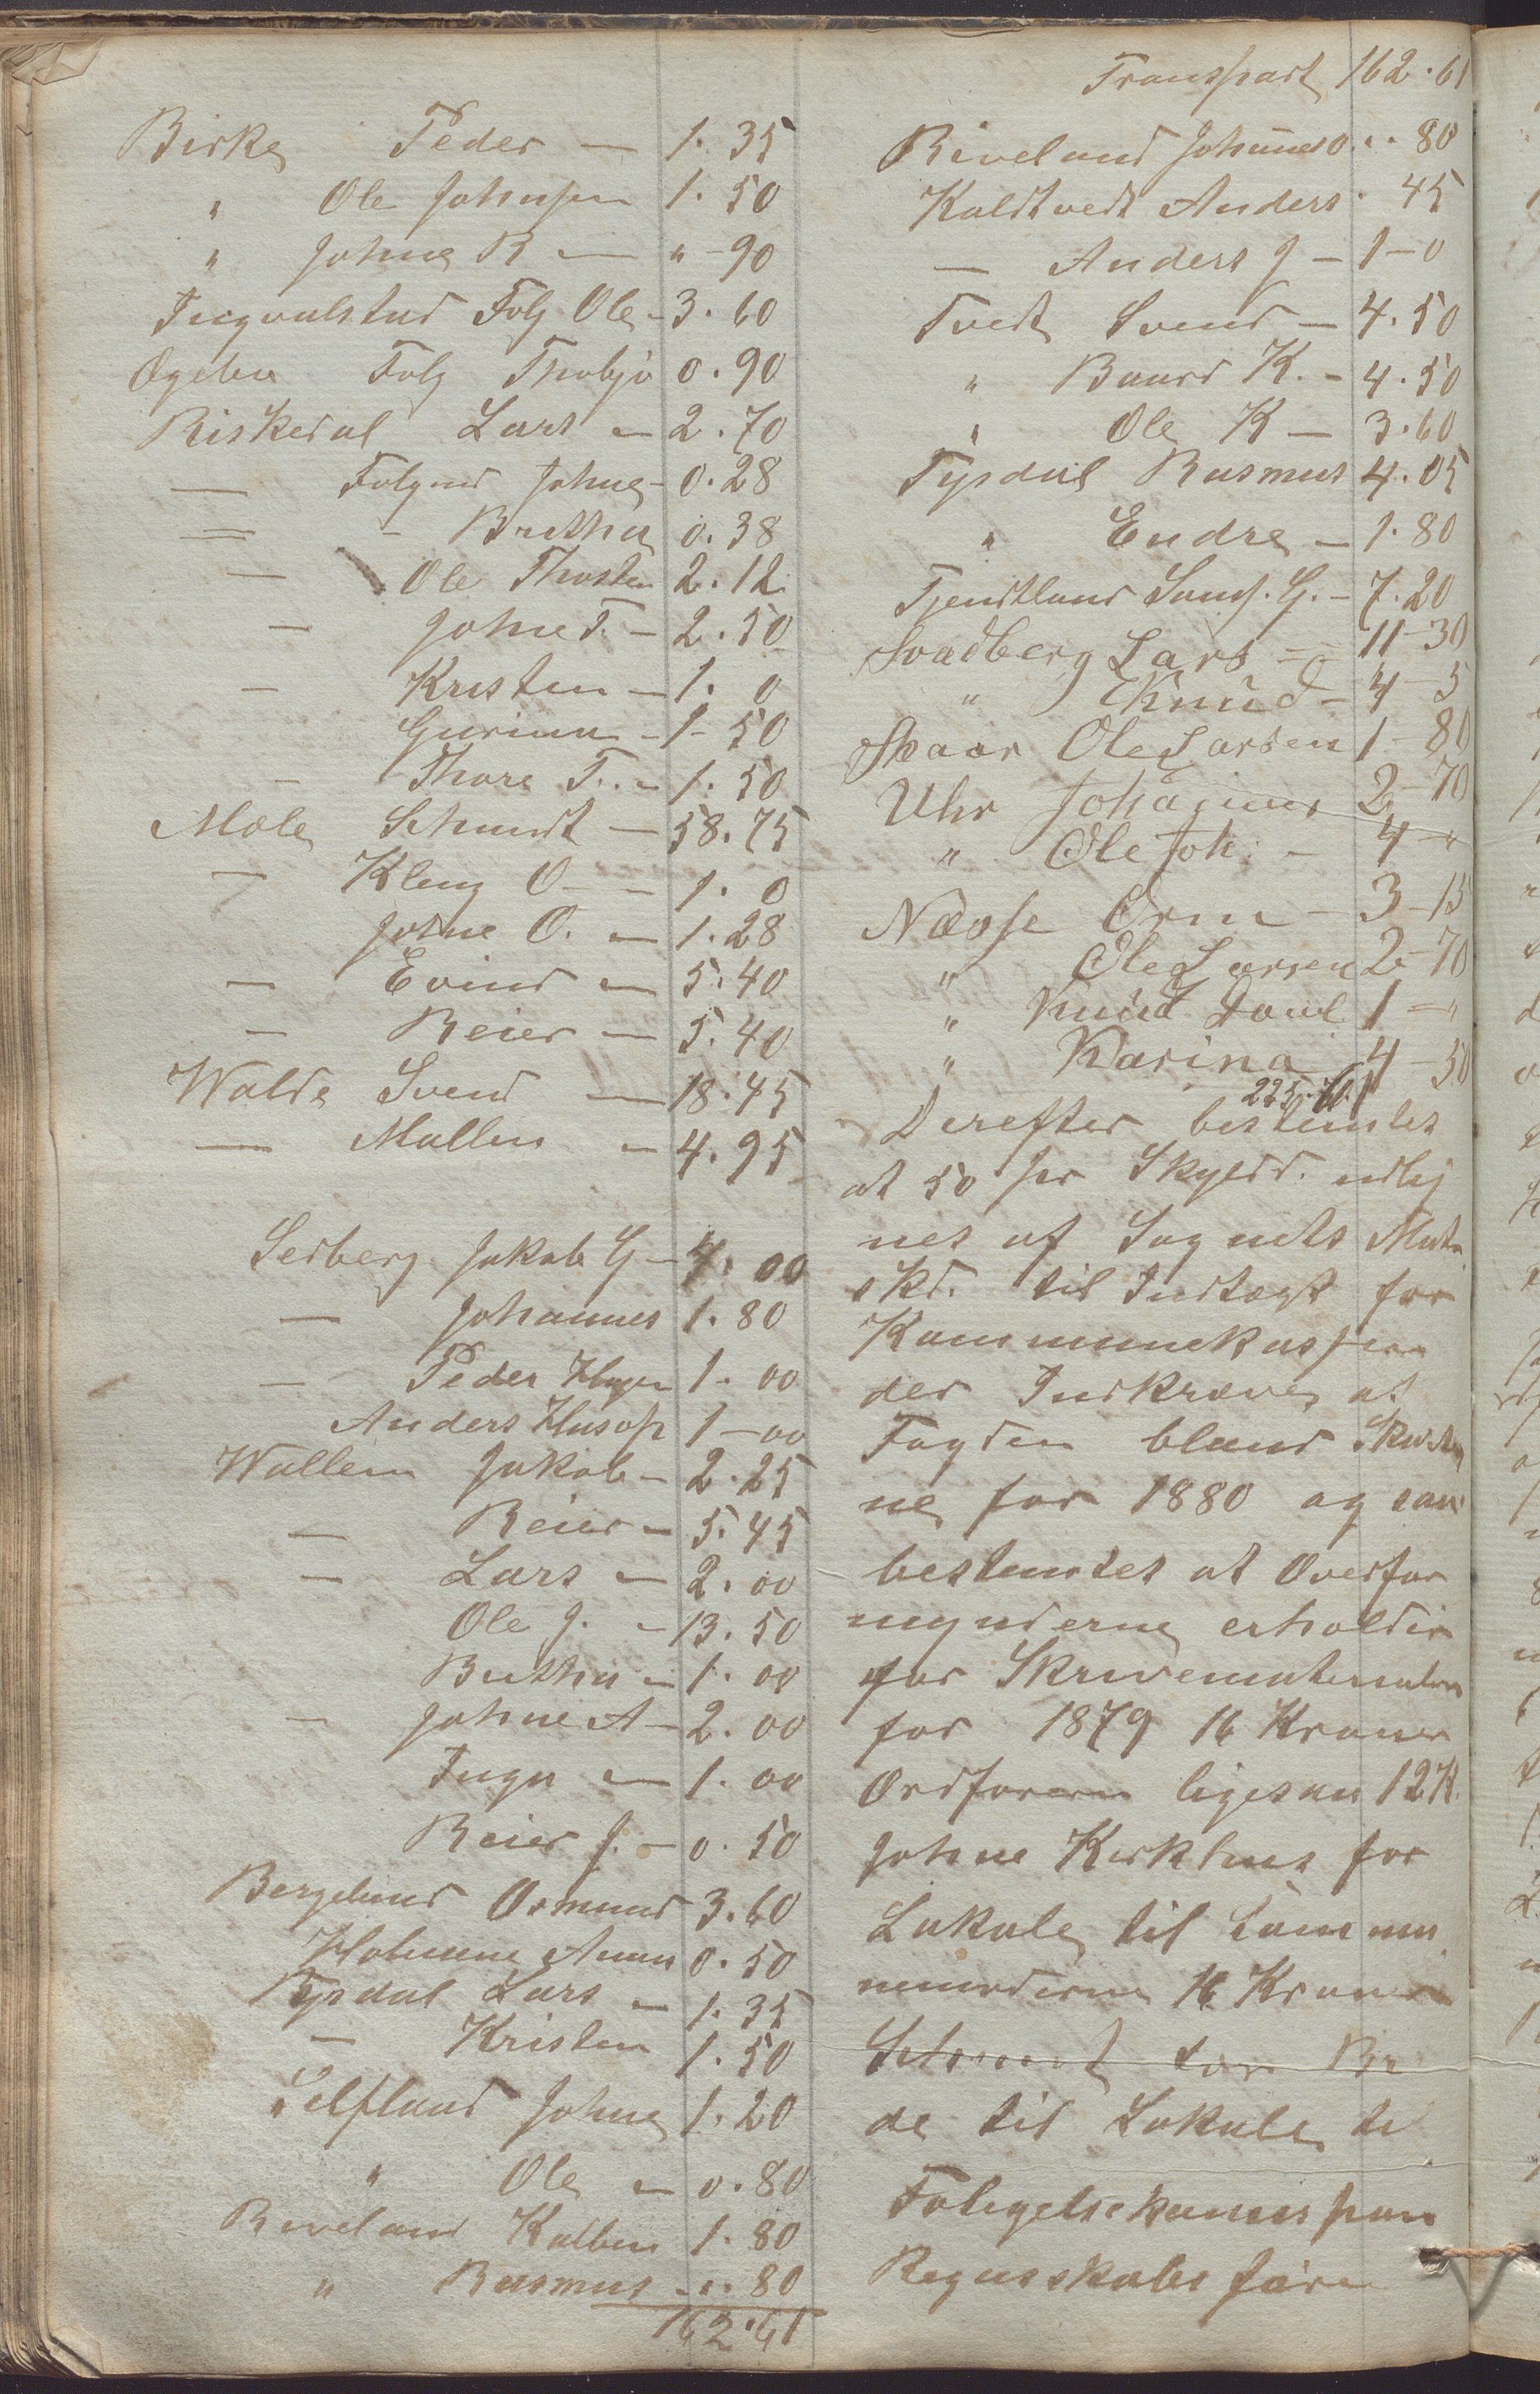 Birke Peder — 1. 35
" Ole Johnsen 1. 50
" Johne R — " - 90
Ingvalstad Følg Ole - 3. 60
Øgelen Følg Thobjø 0. 90
Riskedal Lars - 2. 70
— Følgmd Johne - 0. 28
= - Bertha 0. 38
— Ole Thosten 2. 12
— Johne T. - 2. 50
— Kristen - 1. 0
Gurina - 1 - 50
- Thore T. - 1. 50
Mæle Schmidt — 58. 75
— Kleng O - - 1. 0
Johne O. - 1. 28
— Evind - 5. 40
— Reier - 5. 40
Walde Svend — 18. 45
— Mallen - 4. 95
Sedberg Jakob G - 4. 00
— Johannes 1. 80
— Peder Hagen 1 - 00
Anders Husop 1 - 00
Wallem Jakob - 2. 25
— Reier - 5. 45
— Lars - 2. 00
Ole J. - 13. 50
Bertha - 1. 00
— Johne A - 2. 00
Inga - 1. 00
Reier J. - 0. 50
Bergeland Osmund 3. 60
Holmene Anna 0. 50
Tysdal Lars - 1. 35
— Kristen 1. 50
Selfland Johne 1. 20
" Ole - 0. 80
Riveland Kolben 1. 80
" Rasmus - ". 80
162. 61
Transport 162. 61
Riveland Johannes O. ". 80
Kaldtvedt Anders. 45
— Anders J - 1 - 0
Tvedt Svend - 4. 50
" Baard K. - 4. 50
" Ole K - 3. 60
Tysdal Rasmus 4. 05
" Endre - 1. 80
Tjentland Sams. G. - 7. 20
Svadberg Lars - 11 - 30
" Knud - 4 - 5
Skaar Ole Larsen 1 - 80
Uhr Johannes 2 - 70
" Ole Joh. - 4 - "
Næsse Orm - 3 - 15
" Ole Larsen 2 - 70
" Knud Davl 1 - "
" Karina 4 - 50
225. 70
Derefter bestemtes
at 50 pr Skyldd. udlig
nes af Sognets Matr.
skd. til Indtægt for
Kommunekassen
der Indkræves at
Fogden bland Skatte
ne for 1880 og saa
bestemtes at Overfor
mynderne erholder
for Skrivematerialer
for 1879 16 Kroner
Ordføreren ligesaa 12 K.
Johne Kirkhus for
Lokale til Komm
memøderne 16 Kroner
Schmidt for
de til Lokale ti
Foligelseskommisson
Regnsskabsføre